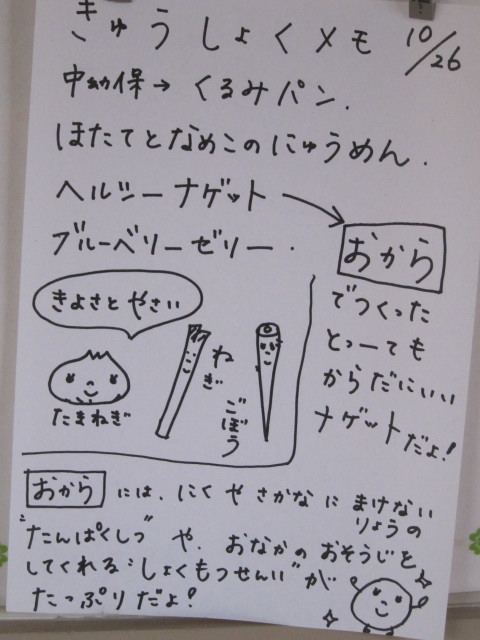 きゅうしょくメモ 10/26
中幼保→くるみパン.
ほたてとなめこのにゅうめん.
ヘルシーナゲット→
ブルーベリーゼリー.
おから
でつくった
とっーても
からだにいい
ナゲットだよ!
きよさとやさい
たまねぎ
ねぎ
ごぼう
おから には、にくやさかなに まけない
りょうの
"たんぱくしつ"や、おなかのおそうじを
してくれる"しょくもつせんい"が
たっぷりだよ!